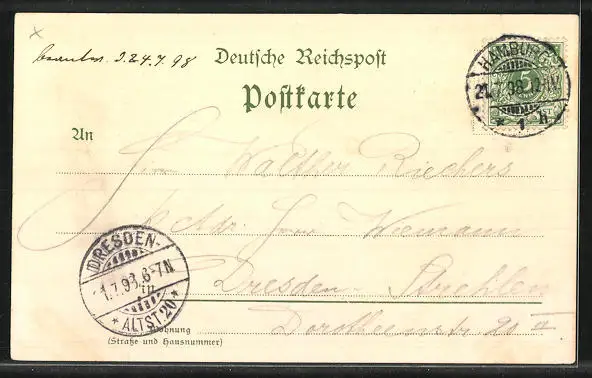 beantw. d. 24.7.98
Deutsche Reichspost
Postkarte
HAMBURG
21.7.98. 12-1N
* 1 h
5
An
Herrn Walther Riechers
p. Adr. Herrn Wiemann
DRESDEN-
1.7.98.6-7N
* ALTST.20 *
in
Dresden-Strehlen
Wohnung
(Straße und Hausnummer)
Dorotheenstr 20 II